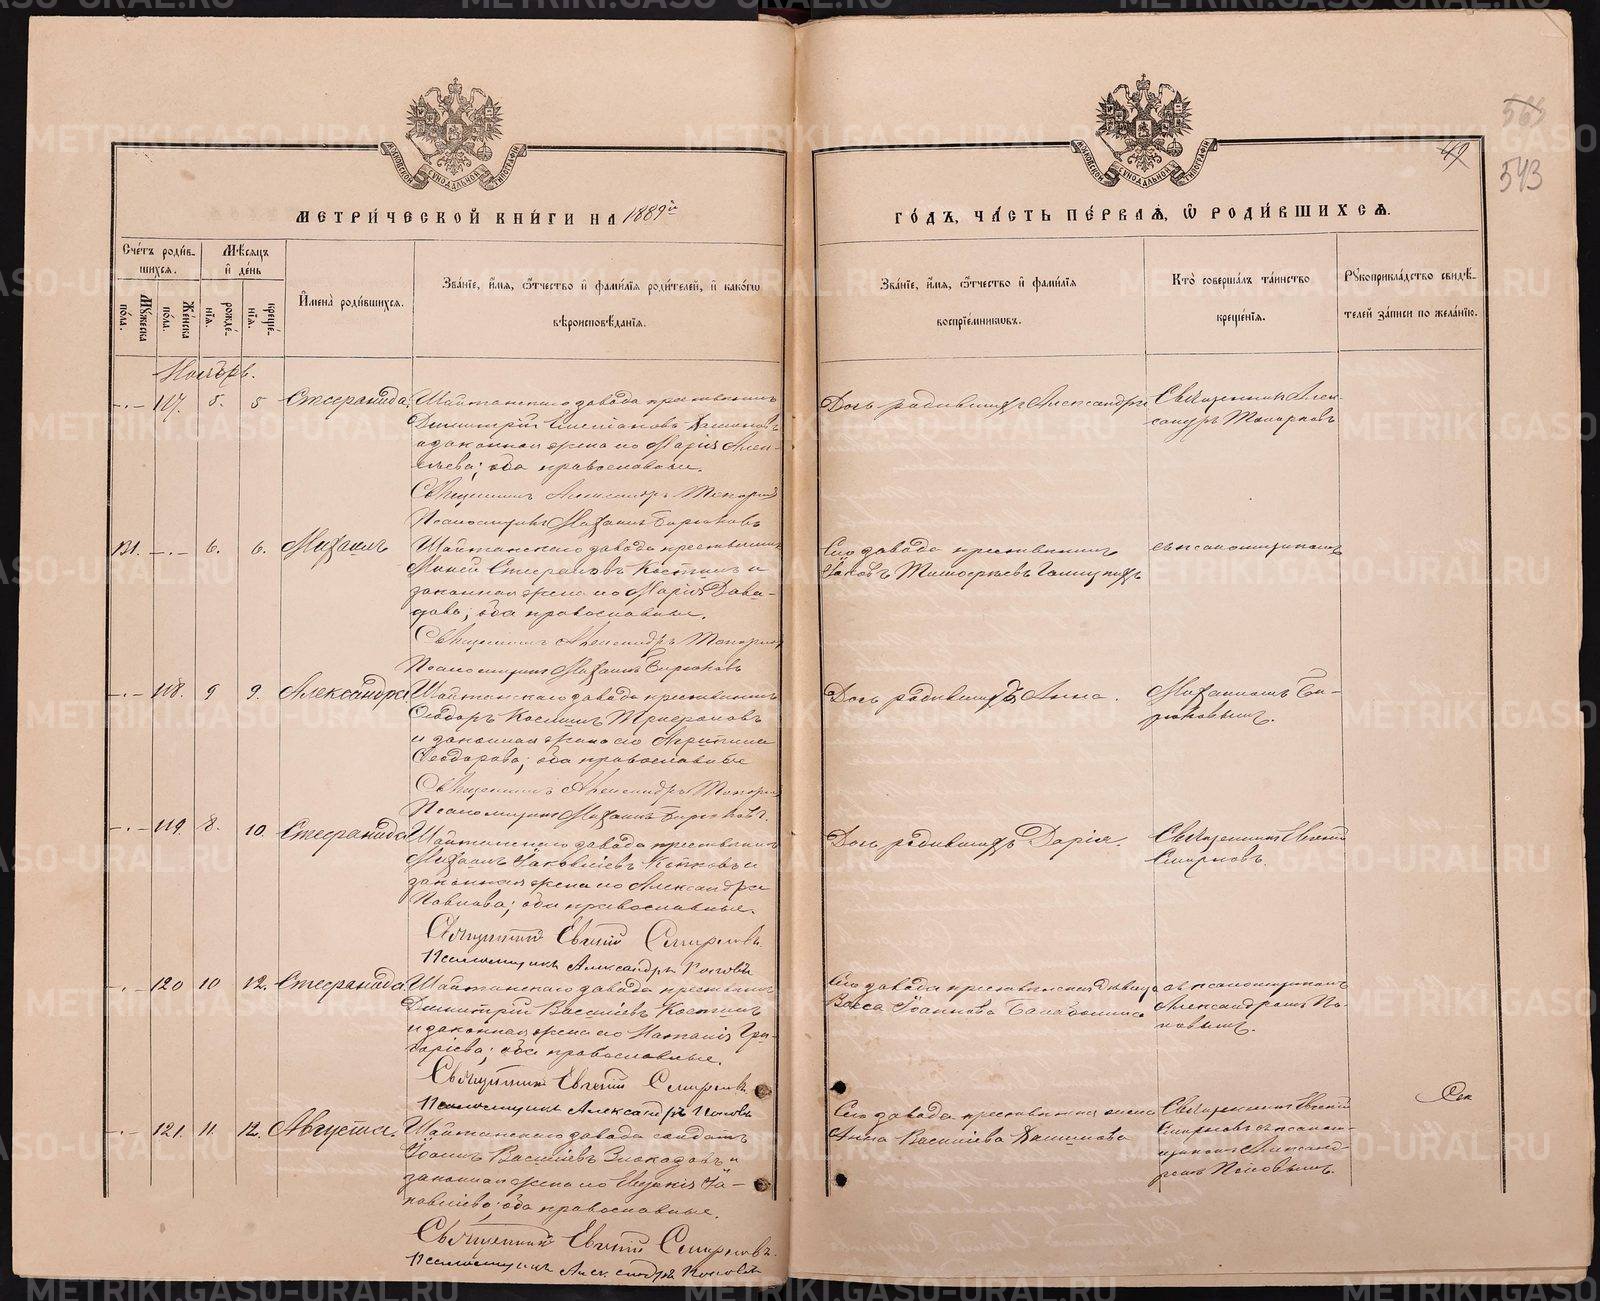 МЕТРИ́ЧЕСКОЙ КНИ́ГИ НА 1889й
ГО́ДЪ, ЧА́СТЬ ПЕ́РВАѦ, Ѿ РОДИ́ВШИХСѦ.
565
49
543
Сче́тъ роди́в-
шихсѧ.
Мѣ́сѧцъ
и҆ де́нь
Мꙋ́жеска
по́ла.
Же́нска
по́ла.
рожде́-
нїѧ.
креще́-
нїѧ.
И҆мена̀ роди́вшихсѧ.
Зва́нїе, и҆́мѧ, ѻ҆́тчество и҆ фами́лїѧ роди́телей, и҆ како́гѡ
вѣроисповѣ́данїѧ.
Зва́нїе, и҆́мѧ, ѻ҆́тчество и҆ фами́лїѧ
воспрїе́мникωвъ.
Кто̀ соверша́лъ та́инство
креще́нїѧ.
Рꙋкоприкла́дство свидѣ́-
телей за́писи по жела́нїю.
Ноябрь.
-"- 117. 5. 5 Стефанида.
Шайтанскаго завода крестьянинъ
Димитрій
и законная жена его Марія Алек-
сѣева; оба православные.
Священникъ Александръ Топорковъ
Псаломщикъ Михаилъ Бирюковъ
Дочь родившихъ Александра
Священникъ Алек-
сандръ Топорковъ
131. -"- 6. 6. Михаилъ
Шайтанскаго завода крестьянинъ
Стефановъ Костинъ и
законная жена его Марія Дави-
дова; оба православные.
Священникъ Александръ Топорковъ
Псаломщикъ Михаилъ Бирюковъ
Его завода крестьянинъ
Іаковъ Тимофеевъ
съ псаломщикомъ
-"- 118. 9 9. Александра
Шайтанскаго завода крестьянинъ
Ѳеодоръ Трифановъ
и законная жена его Агрипина
Ѳеодорова; оба православные
Священникъ Александръ Топорковъ
Псаломщикъ Михаилъ Бирюковъ.
Дочь родившихъ Анна.
Михаиломъ Би-
рюковымъ.
-"- 119. 8. 10. Стефанида
Шайтанскаго завода крестьянинъ
Михаилъ Іаковлевъ и
законная жена его Александра
Павлова; оба православные.
Священникъ Евгеній Смирновъ
Псаломщикъ Александръ Поповъ
Дочь родившихъ Дарія.
Священникъ Евгеній
Смирновъ.
-"- 120 10 12. Стефанида
Шайтанскаго завода крестьянинъ
Димитрій Васильевъ Костинъ
и законная жена его Наталія Гри-
горіева; оба православные.
Священникъ Евгеній Смирновъ
Псаломщикъ Александръ Поповъ
Его завода крестьянская дѣвица
Васса Іоаннова
съ псаломщикомъ
Александромъ По-
повымъ.
-"- 121. 11. 12. Августа.
Шайтанскаго завода солдатъ
Іоаннъ Васильевъ Злоказовъ и
законная жена его Евдокія Іа-
ковлева; оба православные.
Священникъ Евгеній Смирновъ.
Псаломщикъ Александръ Поповъ
Сего завода крестьянская жена
Анна Васильева
Священникъ Евгеній
Смирновъ съ псалом-
щикомъ Александ-
ромъ Поповымъ.